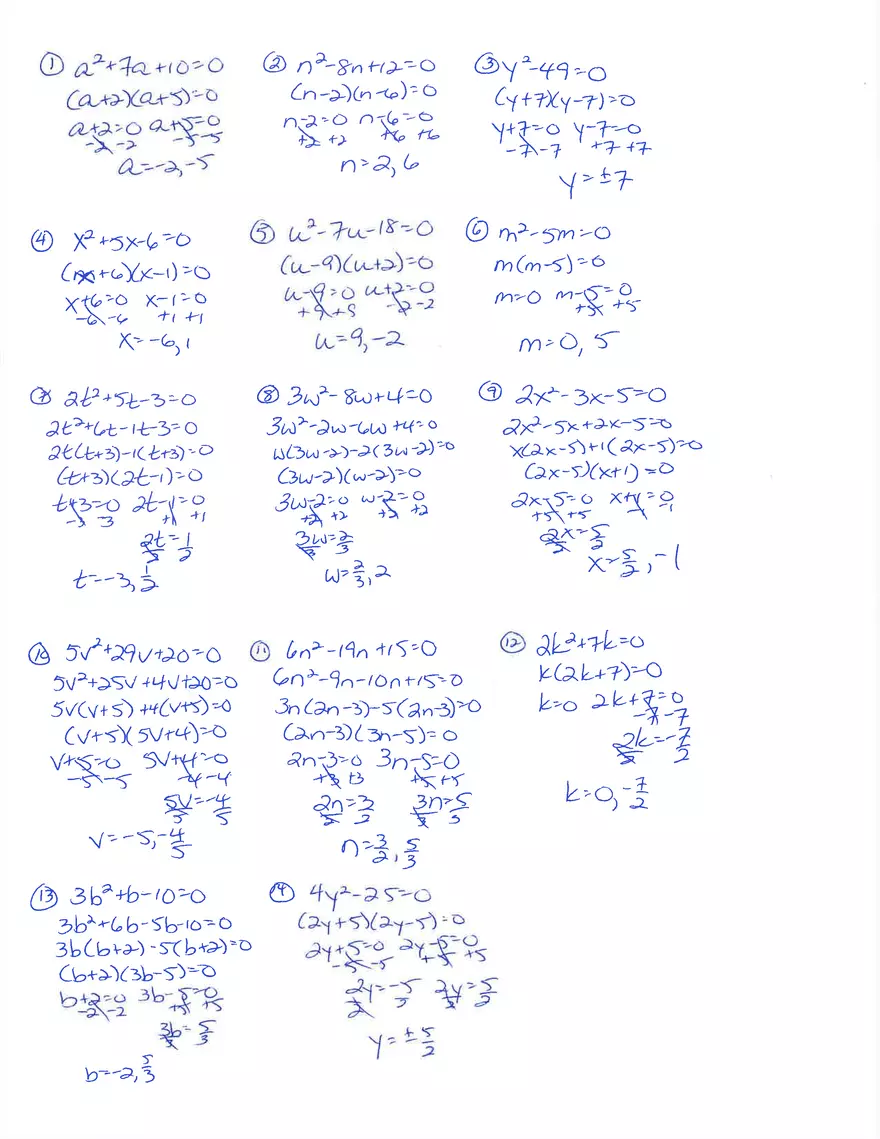 ① a²+7a+10=0
(a+2)(a+5)=0
a+2=0 a+5=0
-2 -2 -5 -5
a=-2,-5
② n²-8n+12=0
(n-2)(n-6)=0
n-2=0 n-6=0
+2 +2 +6 +6
n=2,6
③ y²-49=0
(y+7)(y-7)=0
y+7=0 y-7=0
-7 -7 +7 +7
y=±7
④ x²+5x-6=0
(x+6)(x-1)=0
x+6=0 x-1=0
-6 -6 +1 +1
x=-6,1
⑤ u²-7u-18=0
(u-9)(u+2)=0
u-9=0 u+2=0
+9 +9 -2 -2
u=9,-2
⑥ m²-5m=0
m(m-5)=0
m=0 m-5=0
+5 +5
m=0, 5
⑦ 2t²+5t-3=0
2t²+6t-1t-3=0
2t(t+3)-1(t+3)=0
(t+3)(2t-1)=0
t+3=0 2t-1=0
-3 -3 +1 +1
2t=1
2 2
t=-3,1/2
⑧ 3w²-8w+4=0
3w²-2w-6w+4=0
w(3w-2)-2(3w-2)=0
(3w-2)(w-2)=0
3w-2=0 w-2=0
+2 +2 +2 +2
3w=2
3 3
w=2/3,2
⑨ 2x²-3x-5=0
2x²-5x+2x-5=0
x(2x-5)+1(2x-5)=0
(2x-5)(x+1)=0
2x-5=0 x+1=0
+5 +5 -1 -1
2x=5
2 2
x=5/2,-1
⑩ 5v²+29v+20=0
5v²+25v+4v+20=0
5v(v+5)+4(v+5)=0
(v+5)(5v+4)=0
v+5=0 5v+4=0
-5 -5 -4 -4
5v=-4
5 5
v=-5,-4/5
⑪ 6n²-19n+15=0
6n²-9n-10n+15=0
3n(2n-3)-5(2n-3)=0
(2n-3)(3n-5)=0
2n-3=0 3n-5=0
+3 +3 +5 +5
2n=3 3n=5
2 2 3 3
n=3/2,5/3
⑫ 2k²+7k=0
k(2k+7)=0
k=0 2k+7=0
-7 -7
2k=-7
2 2
k=0,-7/2
⑬ 3b²+b-10=0
3b²+6b-5b-10=0
3b(b+2)-5(b+2)=0
(b+2)(3b-5)=0
b+2=0 3b-5=0
-2 -2 +5 +5
3b=5
3 3
b=-2,5/3
⑭ 4y²-25=0
(2y+5)(2y-5)=0
2y+5=0 2y-5=0
-5 -5 +5 +5
2y=-5 2y=5
2 2 2 2
y=±5/2